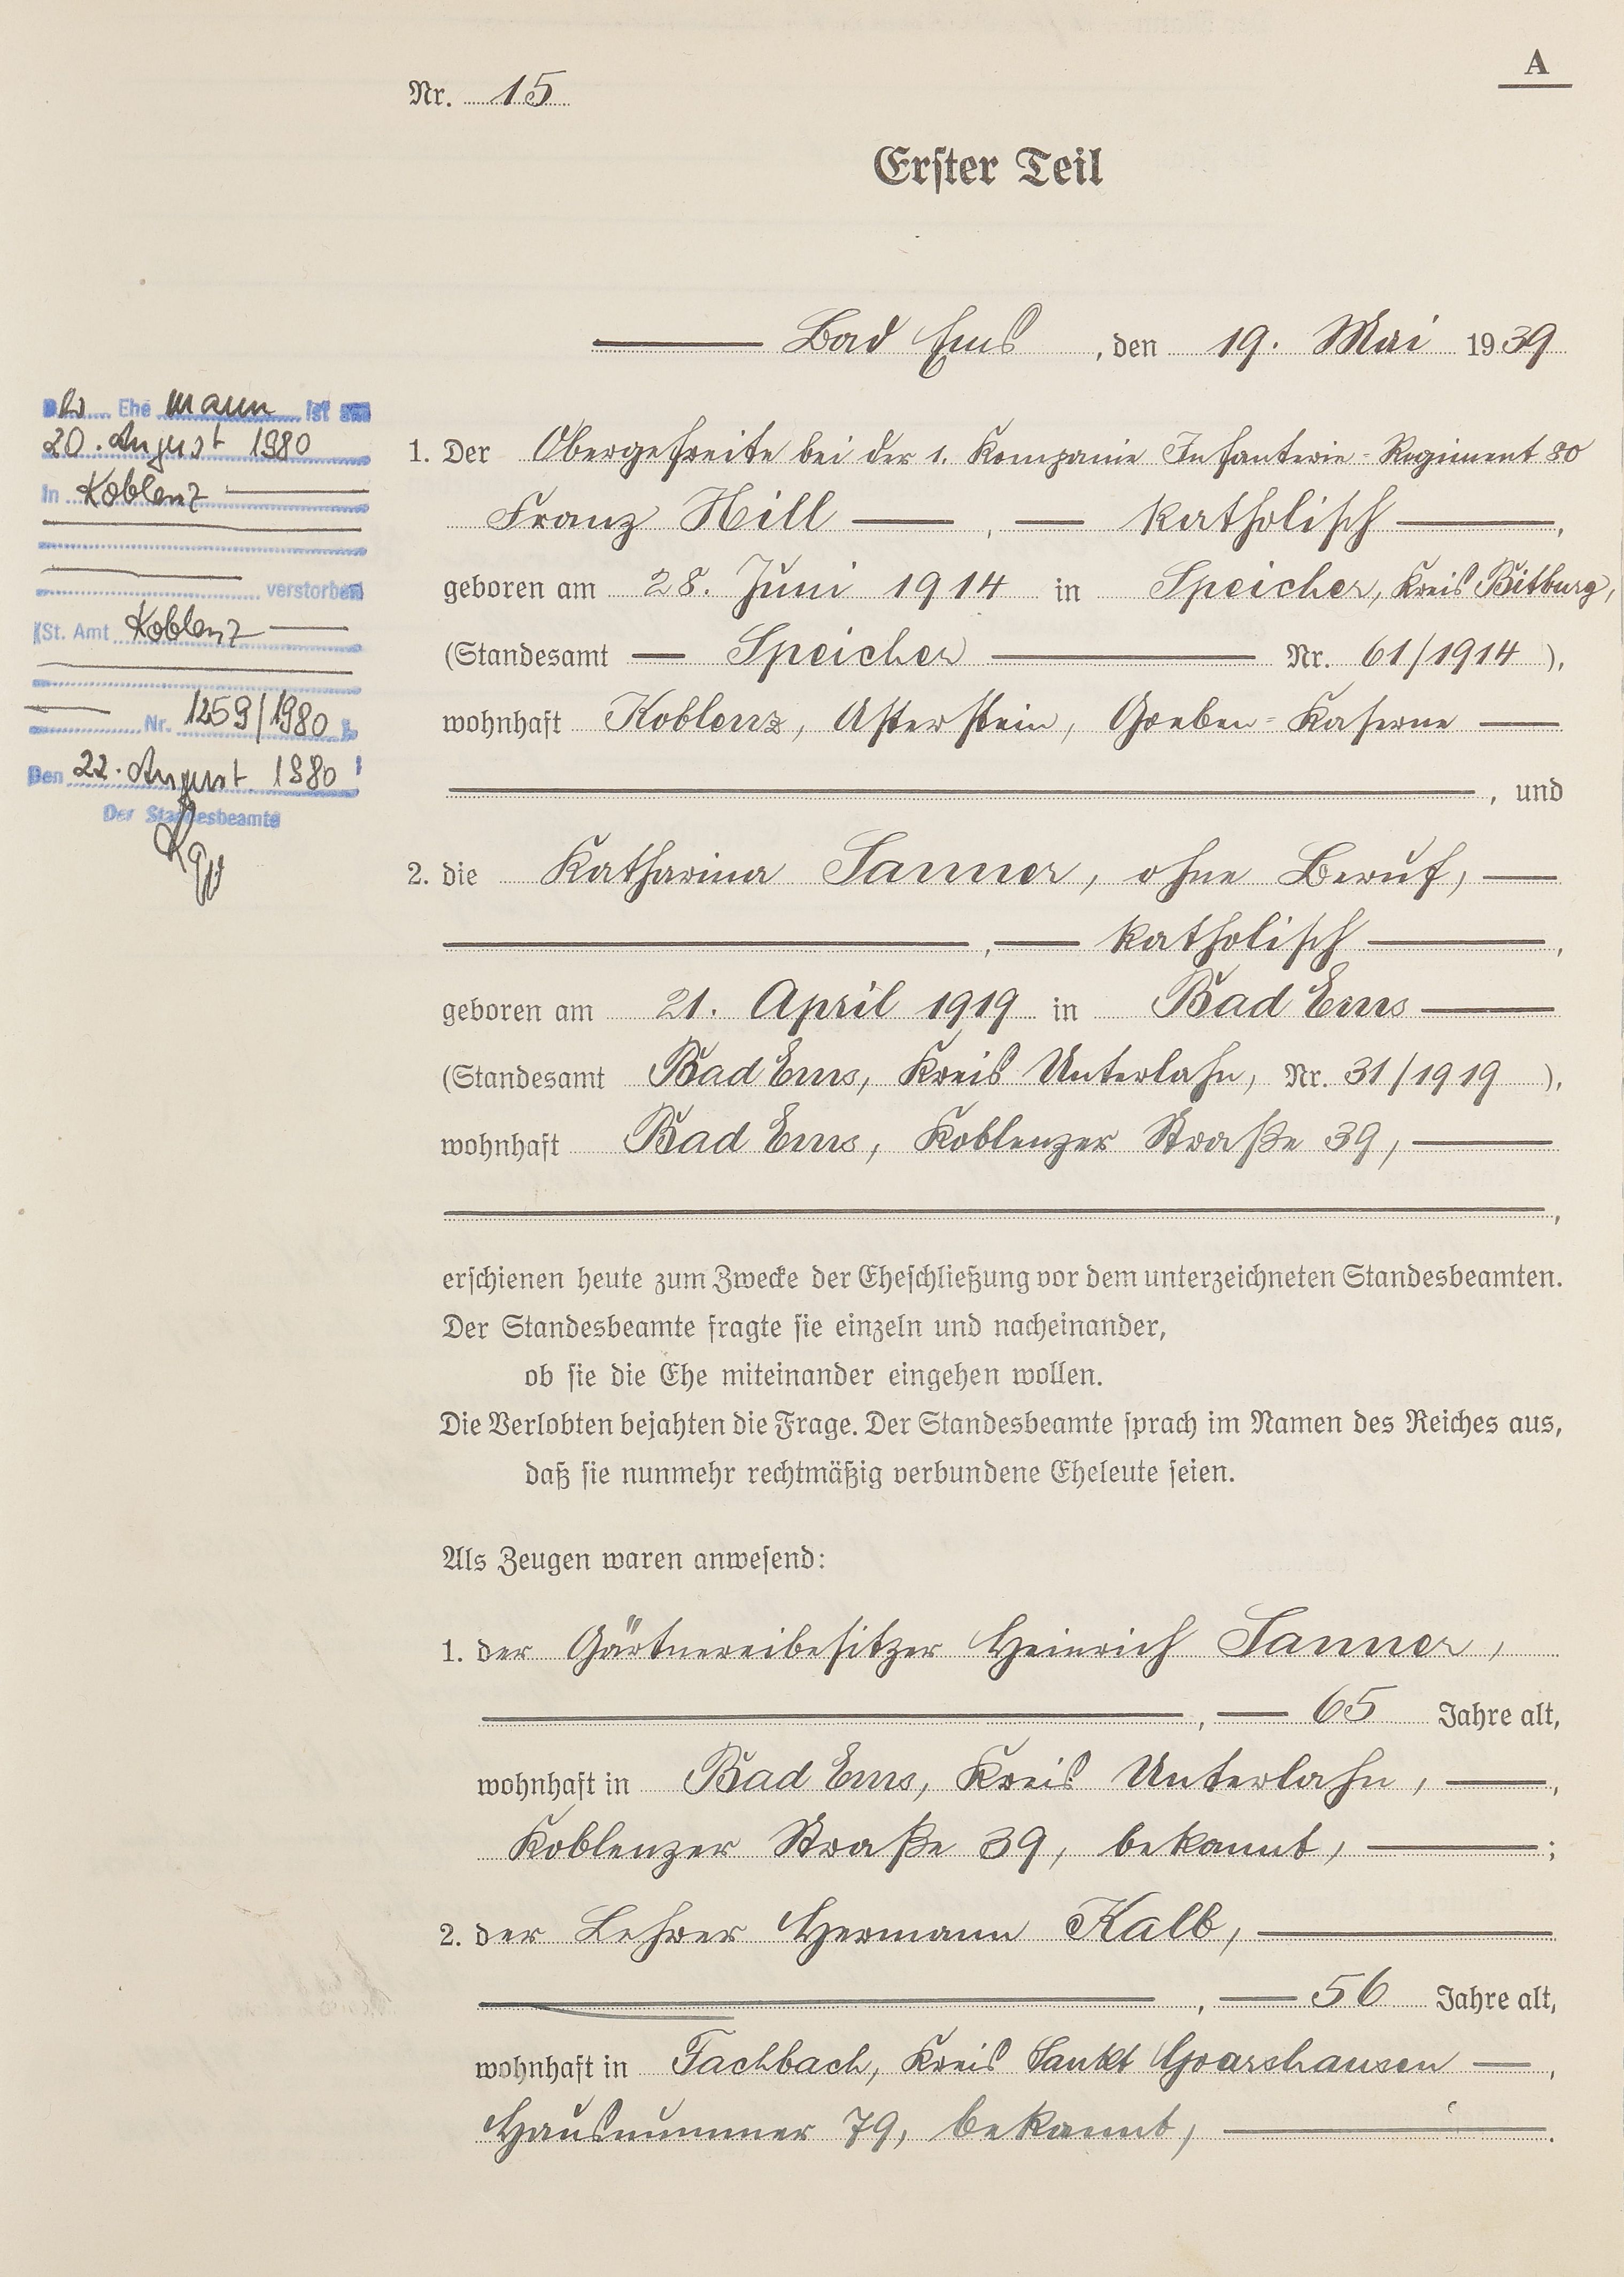 A
Nr. 15
Erster Teil
Bad Ems, den 19. Mai 1939
Der Ehemann ist am
20. August 1980
in Koblenz
verstorben
(St. Amt Koblenz
Nr. 1259/1980)
Den 22. August 1980
Der Standesbeamte
1. Der Obergefreite bei der 1. Kompanie Infanterie-Regiment 80
Franz Hill, katholisch,
geboren am 28. Juni 1914 in Speicher, Kreis Bitburg,
(Standesamt Speicher Nr. 61/1914),
wohnhaft Koblenz, Asterstein, Goeben-Kaserne
, und
2. die Katharina Sanner, ohne Beruf,
, katholisch,
geboren am 21. April 1919 in Bad Ems
(Standesamt Bad Ems, Kreis Unterlahn, Nr. 31/1919),
wohnhaft Bad Ems, Koblenzer Straße 39,
,
erschienen heute zum Zwecke der Eheschließung vor dem unterzeichneten Standesbeamten.
Der Standesbeamte fragte sie einzeln und nacheinander,
ob sie die Ehe miteinander eingehen wollen.
Die Verlobten bejahten die Frage. Der Standesbeamte sprach im Namen des Reiches aus,
daß sie nunmehr rechtmäßig verbundene Eheleute seien.
Als Zeugen waren anwesend:
1. der Gärtnereibesitzer Heinrich Sanner,
, 65 Jahre alt,
wohnhaft in Bad Ems, Kreis Unterlahn, ,
Koblenzer Straße 39, bekannt, ;
2. der Lehrer Hermann Kalb,
, 56 Jahre alt,
wohnhaft in Fachbach, Kreis Sankt Goarshausen ,
Hausnummer 79, bekannt, .